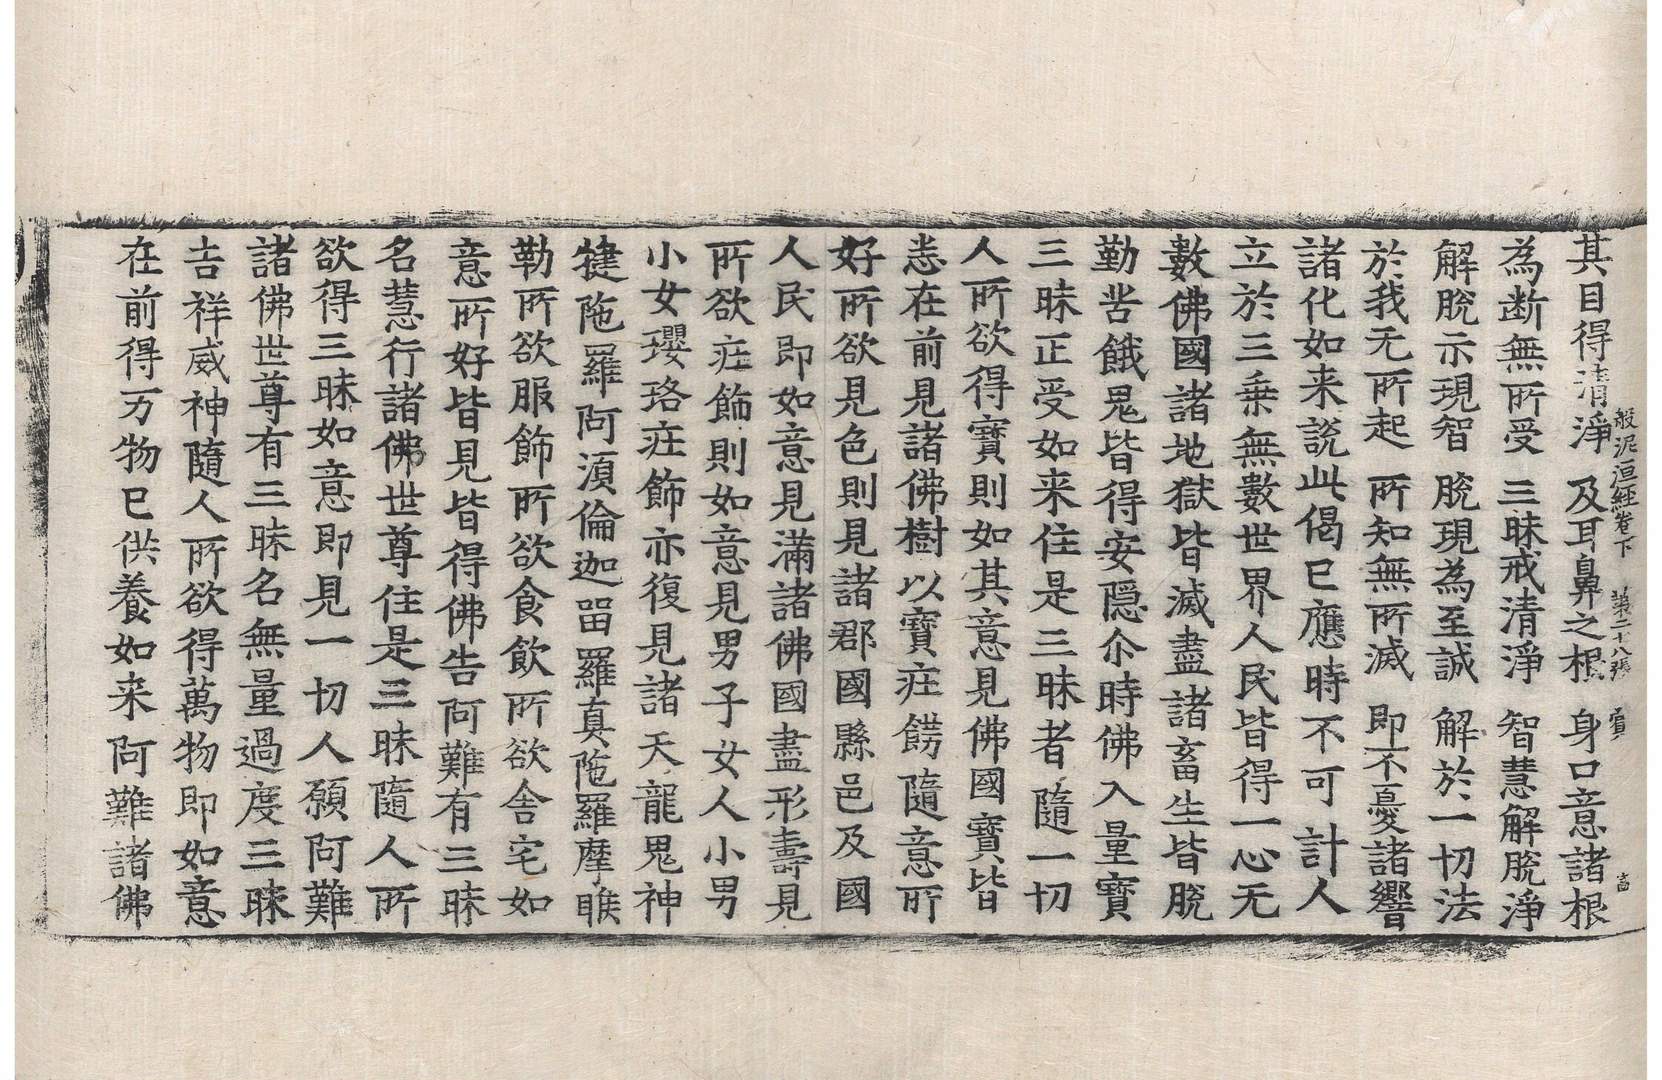 般泥洹經卷下　第二十八張　賓
其目得清淨　及耳鼻之根　身口意諸根
為断無所受　三昧戒清淨　智慧解脫淨
解脫示現智　脫現為至誠　解於一切法
於我无所起　所知無所滅　即不憂諸響
諸化如来說此偈已應時不可計人
立於三乗無數世界人民皆得一心无
數佛國諸地獄皆滅盡諸畜生皆脫
勤苦餓鬼皆得安隱尒時佛入量寶
三昧正受如来住是三昧者隨一切
人所欲得寶則如其意見佛國寶皆
悉在前見諸佛樹以寶疘餝隨意所
好所欲見色則見諸郡國縣邑及國
人民即如意見滿諸佛國盡形壽見
所欲疘飾則如意見男子女人小男
小女瓔珞疘飾亦復見諸天龍鬼神
揵陁羅阿湏倫迦畱羅真陁羅摩睺
勒所欲服飾所欲食飲所欲舍宅如
意所好皆見皆得佛告阿難有三昧
名慧行諸佛世尊住是三昧隨人所
欲得三昧如意即見一切人願阿難
諸佛世尊有三昧名無量過度三昧
吉祥威神隨人所欲得萬物即如意
在前得万物已供養如来阿難諸佛